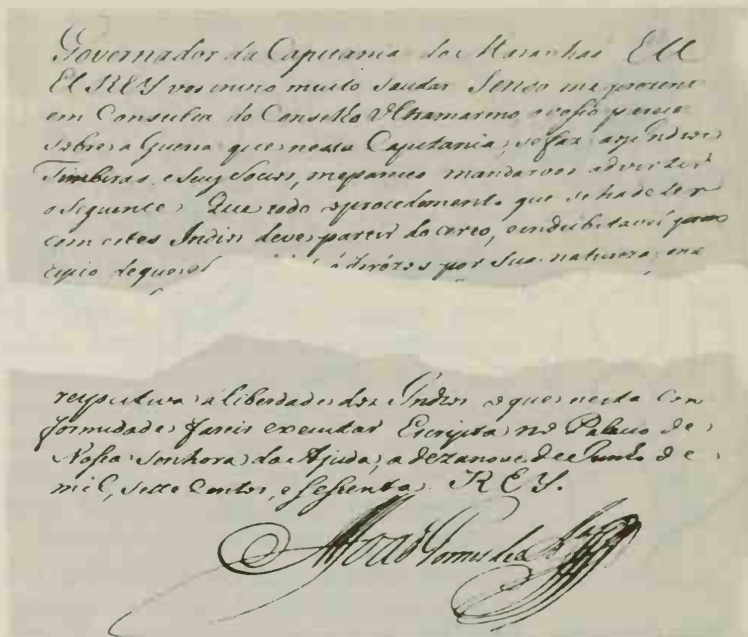 Governador da Capitania do Maranhaõ EU
El REY vos invio muito saudar Sendo me prezente
em Consulta do Conselho Ultramarino o vosso parecer
sobre a Guerra que nessa Capitania, se faz aos Indios
Timbiras, e seus Socios, me pareceo mandarvos advertir
o seguente, Que todo o procedimento que se hade ter
com estes Indios deve partir do certo, e indubitavel prin
cipio de que por sua natureza, e na
respectiva á liberdade dos Indios o que nesta con
formidade fareis executar Escripta no Palacio de
Nossa Senhora da Ajuda, a dezanove de Junho de
mil, sette Centos, e sessenta, REY.